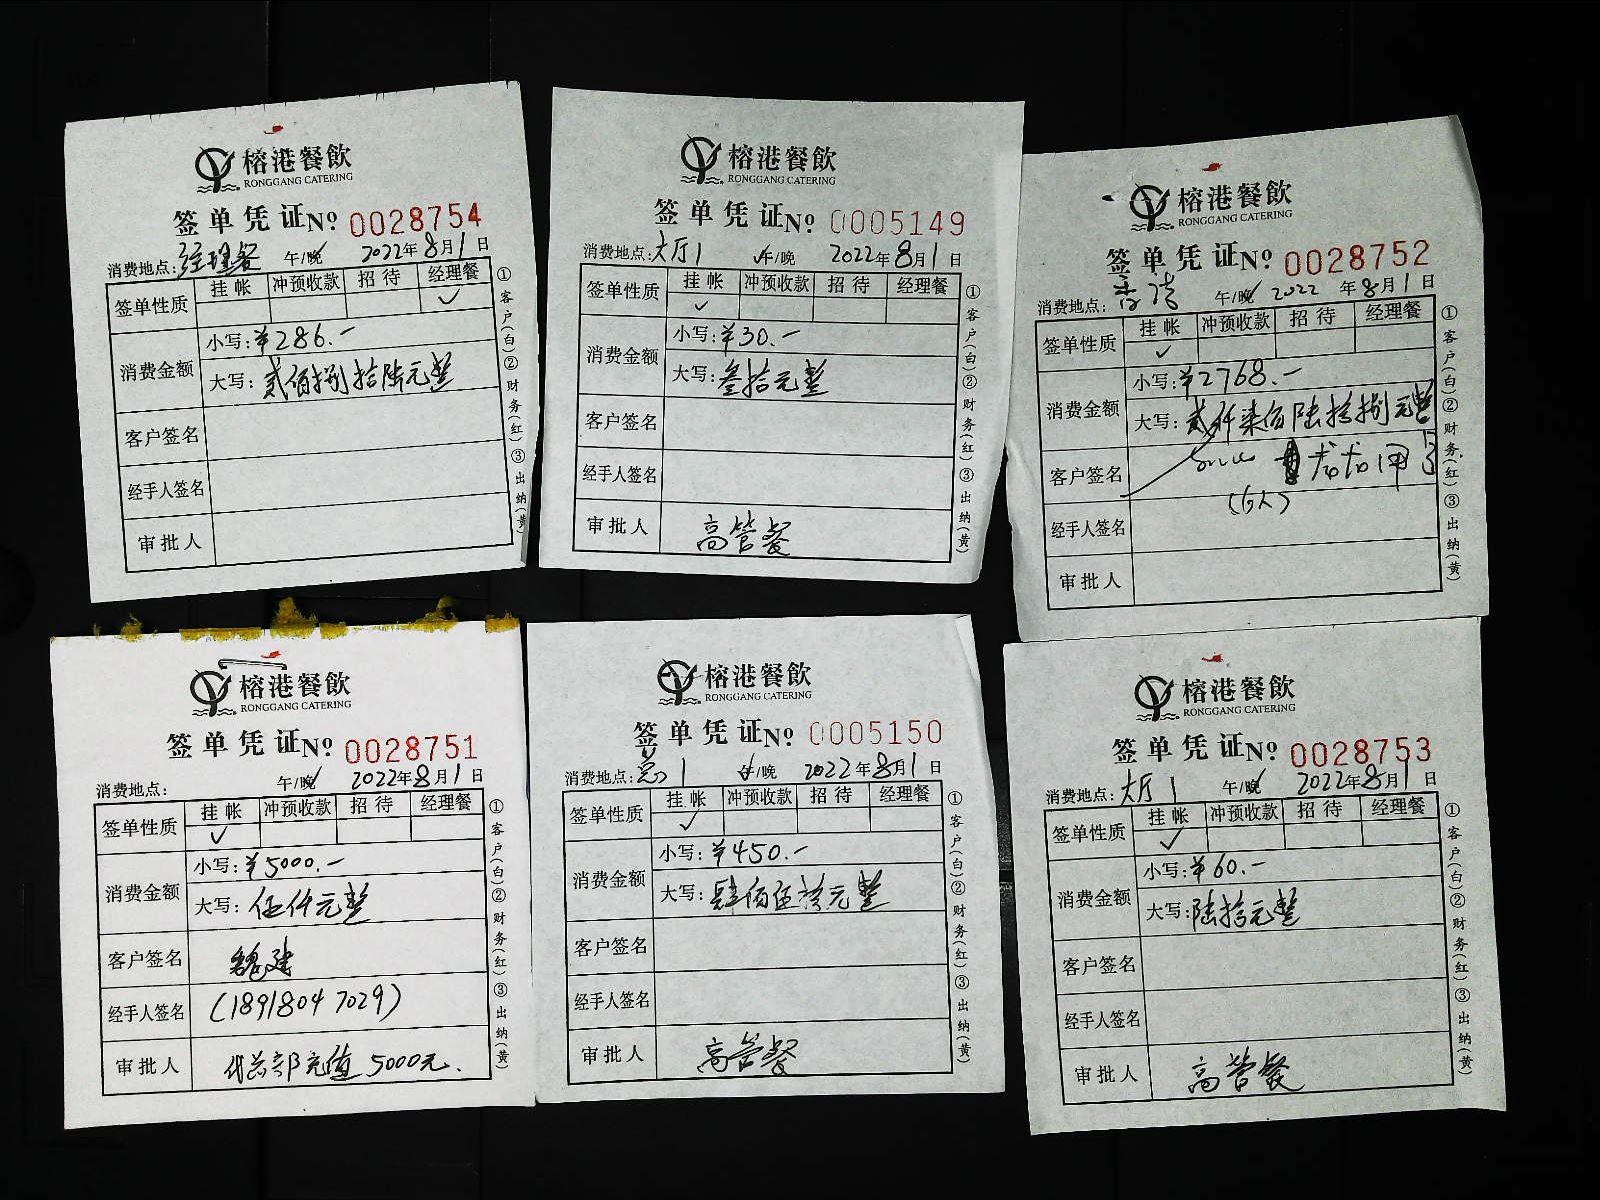 榕港餐飲
RONGGANG CATERING
签单凭证№ 0028754
消费地点:经理餐 午/晚 2022年8月1日
签单性质 挂帐 冲预收款 招待 经理餐
✓
消费金额 小写:¥286.-
大写:贰佰捌拾陆元整
客户签名
经手人签名
审批人
①客户(白)②财务(红)③出纳(黄)
榕港餐飲
RONGGANG CATERING
签单凭证№ 0005149
消费地点:大厅1 午/晚 2022年8月1日
签单性质 挂帐 冲预收款 招待 经理餐
✓
消费金额 小写:¥30.-
大写:叁拾元整
客户签名
经手人签名
审批人 高管餐
①客户(白)②财务(红)③出纳(黄)
榕港餐飲
RONGGANG CATERING
签单凭证№ 0028752
消费地点: 午/晚 2022年8月1日
签单性质 挂帐 冲预收款 招待 经理餐
✓
消费金额 小写:¥2768.-
大写:贰仟柒佰陆拾捌元整
客户签名
经手人签名
审批人
①客户(白)②财务(红)③出纳(黄)
榕港餐飲
RONGGANG CATERING
签单凭证№ 0028751
消费地点: 午/晚 2022年8月1日
签单性质 挂帐 冲预收款 招待 经理餐
✓
消费金额 小写:¥5000.-
大写:伍仟元整
客户签名 魏建
经手人签名 (18918047029)
审批人 代总部充值5000元.
①客户(白)②财务(红)③出纳(黄)
榕港餐飲
RONGGANG CATERING
签单凭证№ 0005150
消费地点: 1 午/晚 2022年8月1日
签单性质 挂帐 冲预收款 招待 经理餐
✓
消费金额 小写:¥450.-
大写:肆佰伍拾元整
客户签名
经手人签名
审批人 高管餐
①客户(白)②财务(红)③出纳(黄)
榕港餐飲
RONGGANG CATERING
签单凭证№ 0028753
消费地点:大厅1 午/晚 2022年8月1日
签单性质 挂帐 冲预收款 招待 经理餐
✓
消费金额 小写:¥60.-
大写:陆拾元整
客户签名
经手人签名
审批人 高管餐
①客户(白)②财务(红)③出纳(黄)